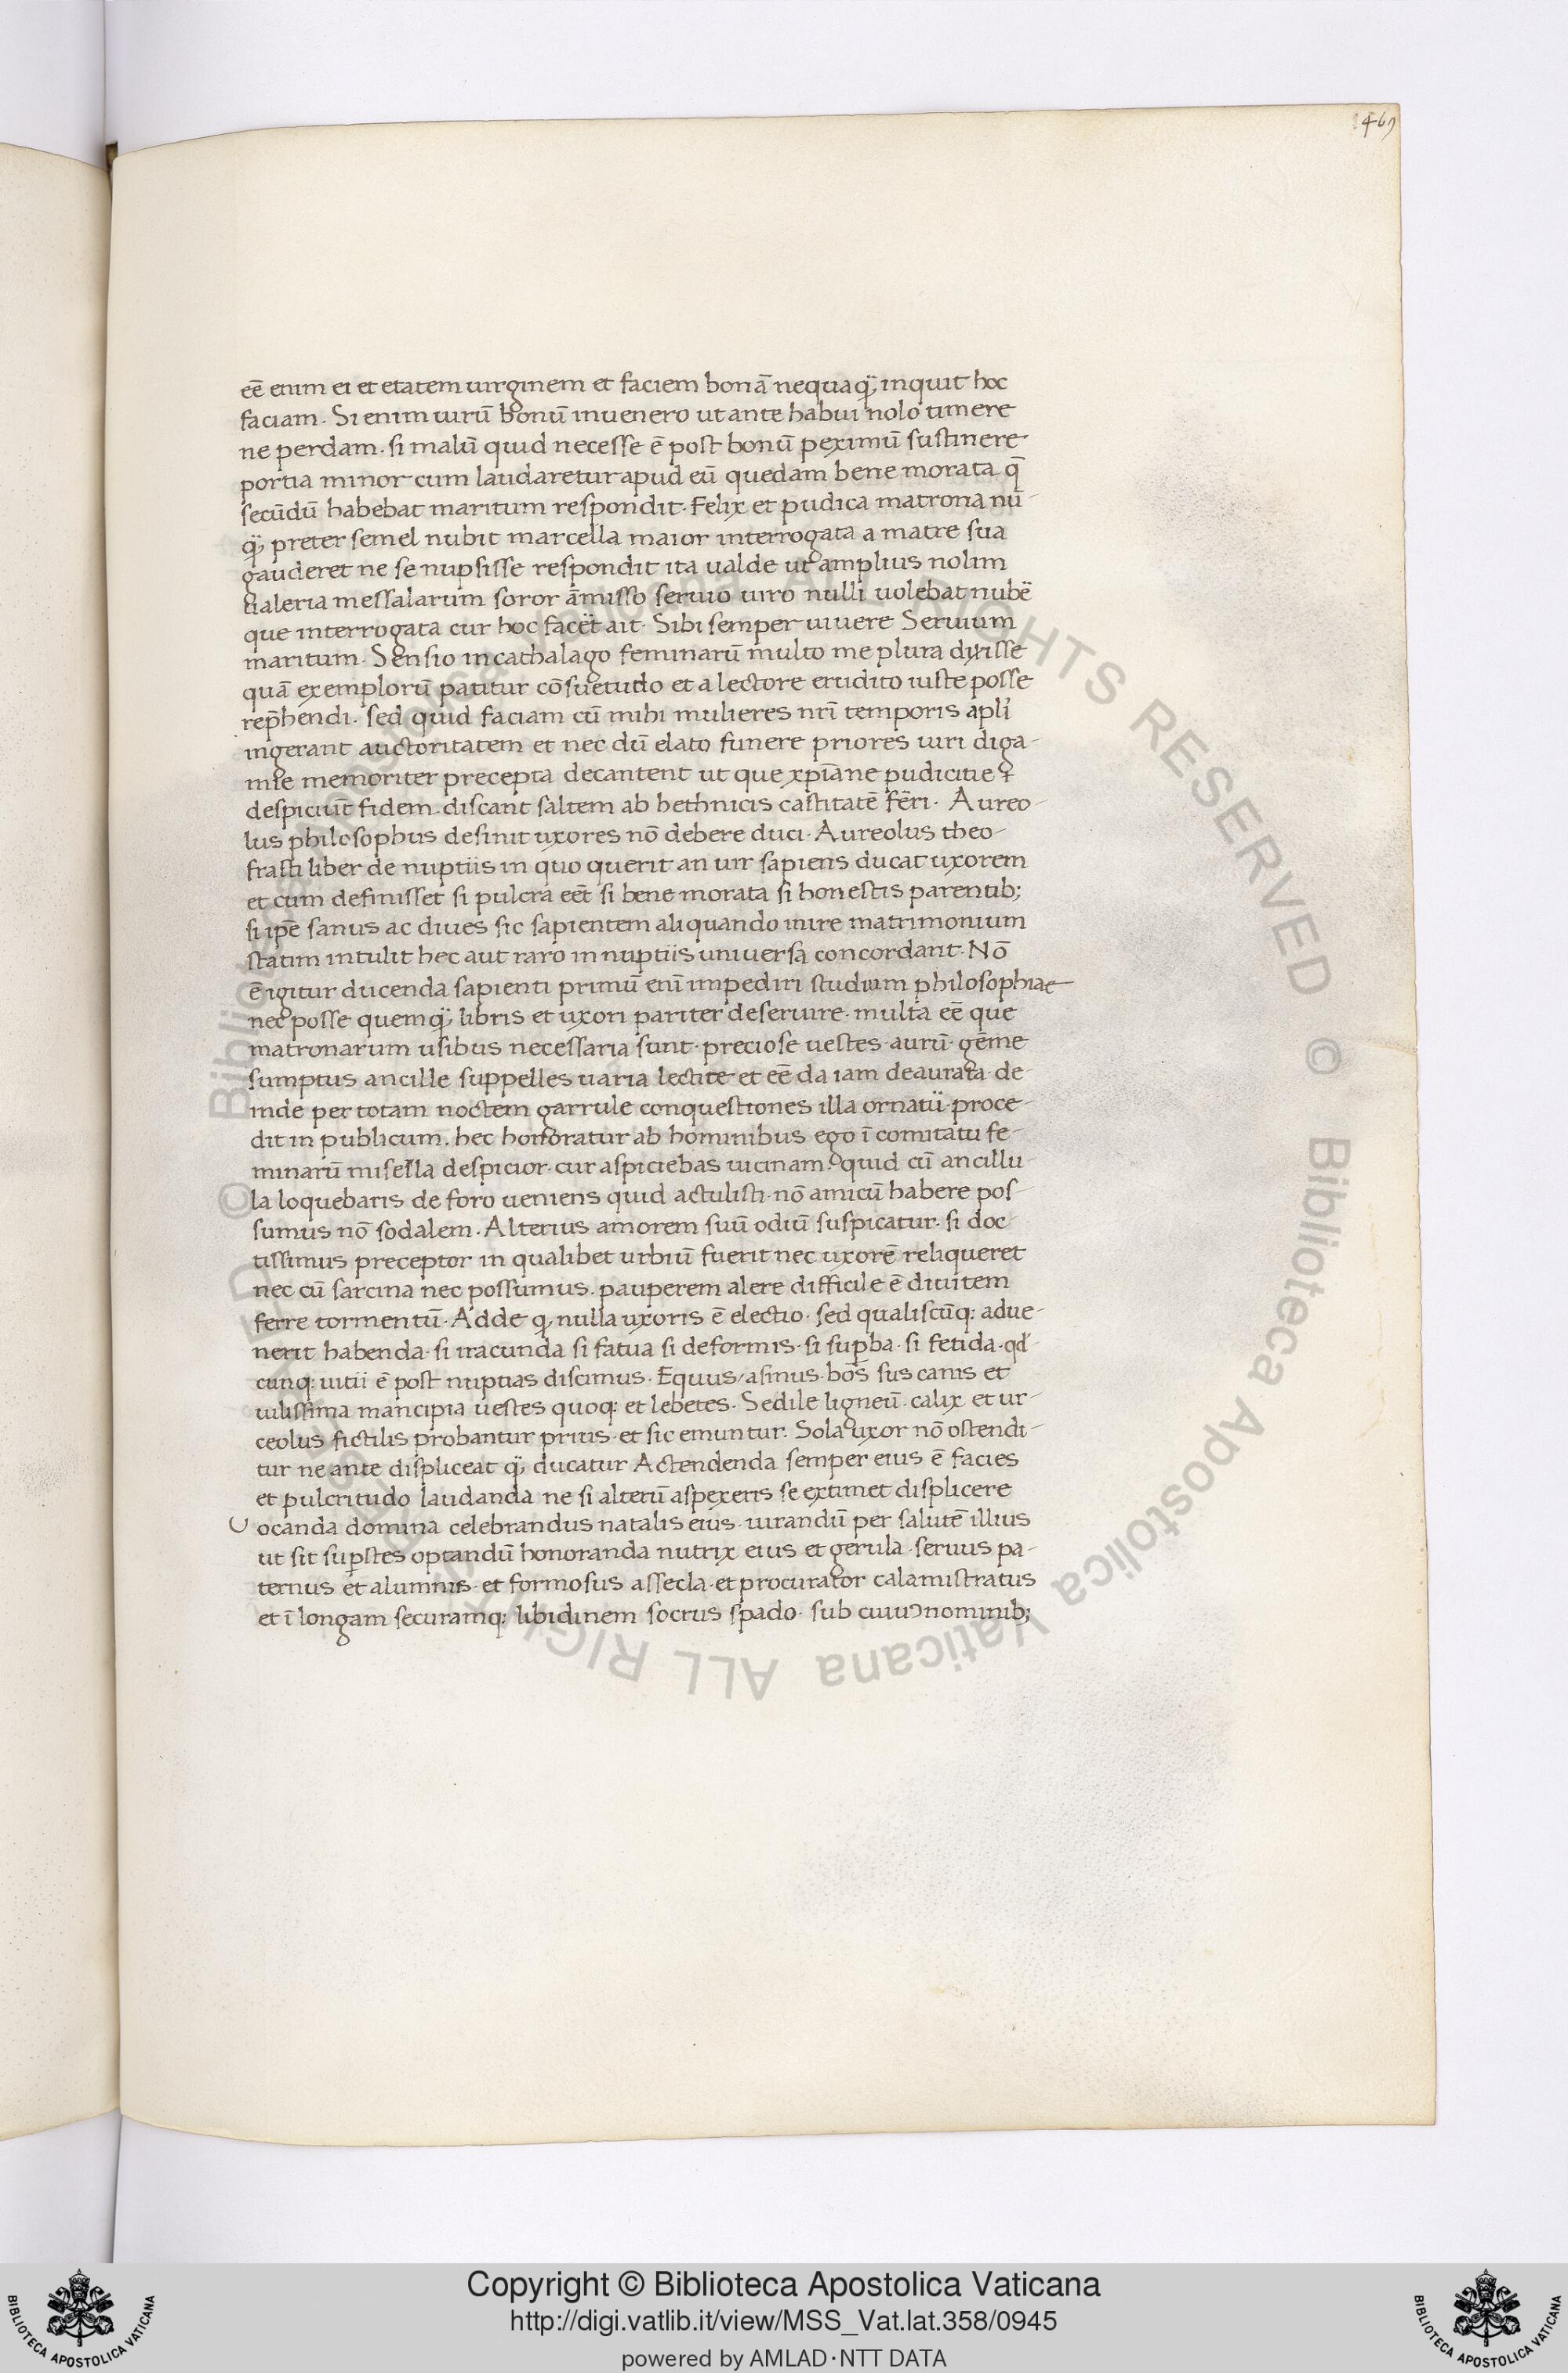 469
eē enim ei et etatem uirginem et faciem bonā nequaq̈ inquit hoc
faciam. Si enim uirū bonū inuenero ut ante habui nolo timere
ne perdam. si malū quid necesse ē post bonū peximū sustinere
portia minor cum laudaretur apud eū quedam bene morata q̄
secūdū habebat maritum respondit. Felix et pudica matrona nū-
q̈ preter semel nubit marcella maior interrogata a matre sua
gauderet ne se nupsisse respondit ita ualde ut amplius nolim
Galeria messalarum soror āmisso seruio uiro nulli uolebat nubē
que interrogata cur hoc facēt ait. Sibi semper uiuere Seruium
maritum. Sensio in cathalago feminarū multo me plura dixisse
quā exemplorū patitur cōsuetudo et a lectore erudito iuste posse
rep̄hendi. sed quid faciam cū mihi mulieres nr̄i temporis apl̄i
ingerant auctoritatem et nec dū elato funere priores uiri diga-
mie memoriter precepta decantent ut que xp̄iane pudicitie
despiciūt fidem. discant saltem ab hethnicis castitatē fēri. Aureo-
lus philosophus definit uxores nō debere duci. Aureolus theo-
frasti liber de nuptiis in quo querit an uir sapiens ducat uxorem
et cum definisset si pulcra eēt si bene morata si honestis parentib;
si ip̄e sanus ac diues sic sapientem aliquando inire matrimonium
statim intulit hec aut raro in nuptiis uniuersa concordant. Nō
ē igitur ducenda sapienti primū enī impediri studium philosophiae
nec posse quemq̈ libris et uxori pariter deseruire. multa eē que
matronarum usibus necessaria sunt. preciose uestes. aurū. gēme
sumptus ancille suppelles uaria lectite et eē da iam deaurata. de-
inde per totam noctem garrule conquestiones illa ornatū. proce-
dit in publicum. hec honoratur ab hominibus ego ī comitatu fe-
minarū misella despicior. cur aspiciebas uicinam. quid cū ancillu-
la loquebaris de foro ueniens quid actulisti. nō amicū habere pos-
sumus nō sodalem. Alterius amorem suū odiū suspicatur. si doc-
tissimus preceptor in qualibet urbiū fuerit nec uxorē reliqueret
nec cū sarcina nec possumus. pauperem alere difficile ē diuitem
ferre tormentū. Adde q, nulla uxoris ē electio. sed qualiscūq: adue-
nerit habenda. si iracunda si fatua si deformis. si sup̱ba. si fetida. qd́
cunq: uitii ē post nuptias discimus. Equus/asinus. bōs sus canis et
uilissima mancipia uestes quoq: et lebetes. Sedile ligneū. calix et ur-
ceolus fictilis probantur prius. et sic emuntur. Sola uxor nō ostendi-
tur ne ante displiceat q̈ ducatur Actendenda semper eius ē facies
et pulcritudo laudanda ne si alterū aspexeris se extimet displicere
Uocanda domina celebrandus natalis eius. iurandū per salutē illius
ut sit sup̱stes optandū honoranda nutrix eius et gerula. seruus pa-
ternus et alumnus. et formosus assecla. et procurator calamistratus
et ī longam securamq: libidinem socrus spado. sub cuiuɔ nominib;
© Biblioteca Apostolica Vaticana ALL RIGHTS RESERVED
Copyright © Biblioteca Apostolica Vaticana
http://digi.vatlib.it/view/MSS_Vat.lat.358/0945
powered by AMLAD·NTT DATA
BIBLIOTECA APOSTOLICA VATICANA
BIBLIOTECA APOSTOLICA VATICANA